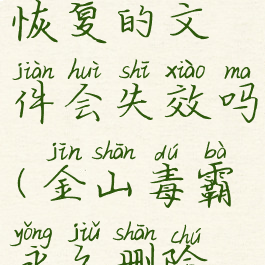 恢复的文
jiàn huì shī xiào ma
件会失效吗
jīn shān dú bà
(金山毒霸
yǒng jiǔ shān chú
永久删除